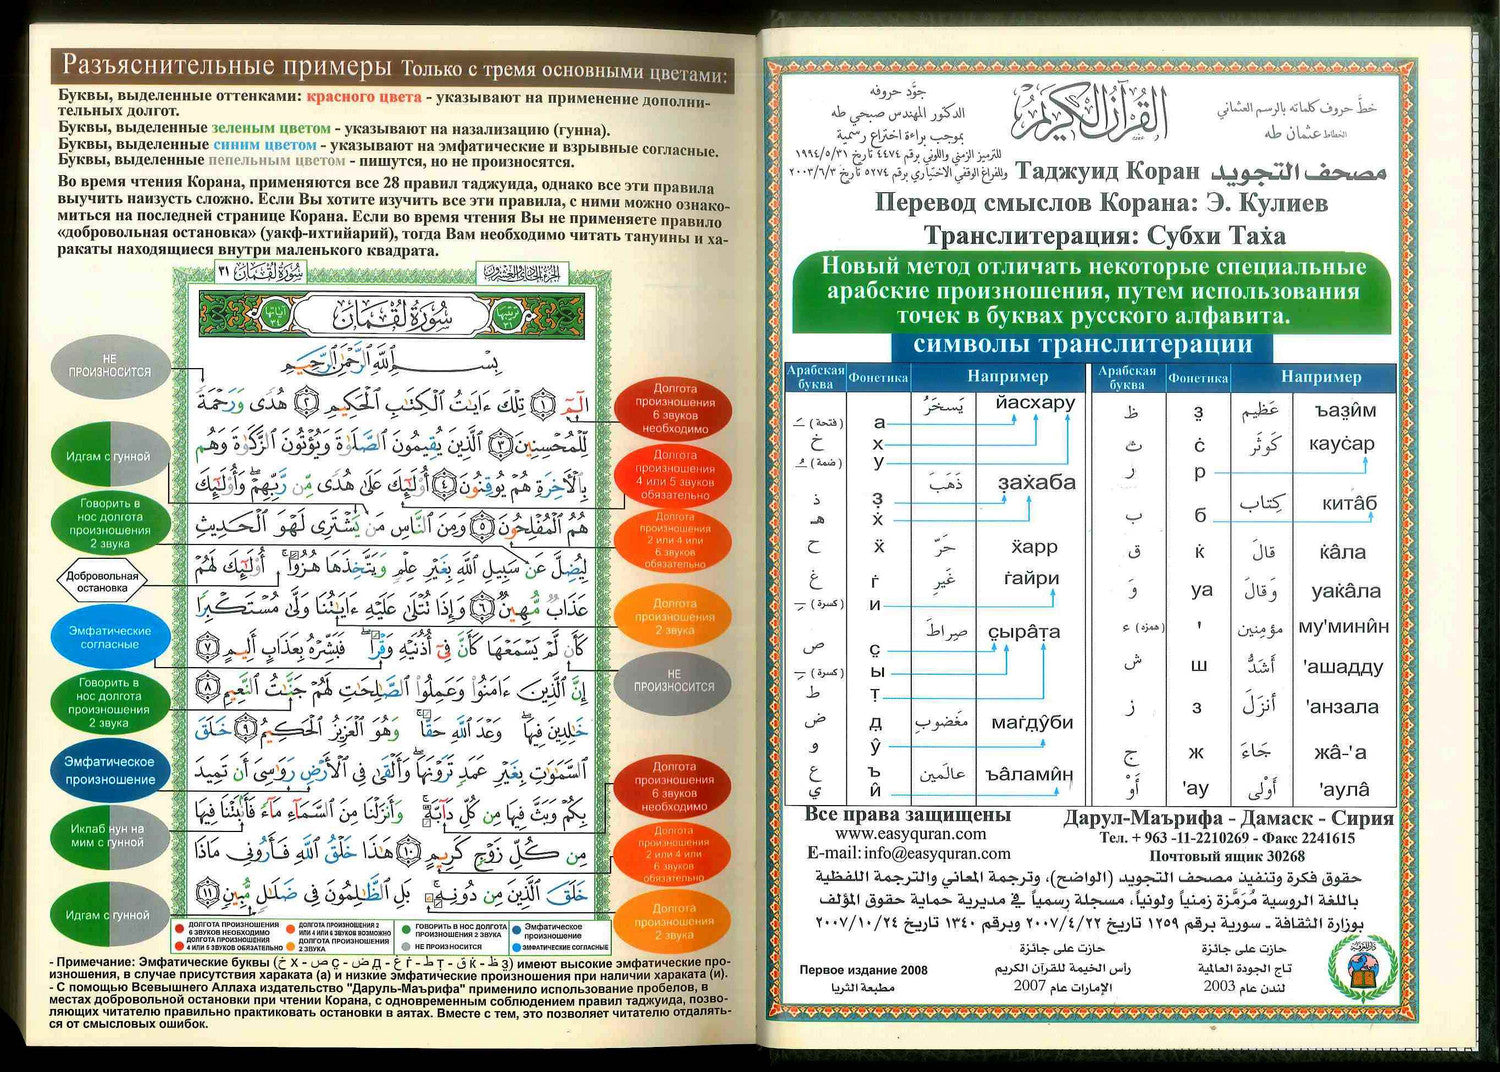 Разъяснительные примеры Только с тремя основными цветами:
Буквы, выделенные оттенками: красного цвета - указывают на применение дополни-
тельных долгот.
Буквы, выделенные зеленым цветом - указывают на назализацию (гунна).
Буквы, выделенные синим цветом - указывают на эмфатические и взрывные согласные.
Буквы, выделенные пепельным цветом - пишутся, но не произносятся.
Во время чтения Корана, применяются все 28 правил таджуида, однако все эти правила
выучить наизусть сложно. Если Вы хотите изучить все эти правила, с ними можно ознако-
миться на последней странице Корана. Если во время чтения Вы не применяете правило
«добровольная остановка» (уакф-ихтийарий), тогда Вам необходимо читать тануины и ха-
ракаты находящиеся внутри маленького квадрата.
سُورَةُ لُقْمَان ٣١
الجزء الحادي والعشرون
ترتيبها ٣١
سُورَةُ لُقْمَان
آياتها ٣٤
بِسْمِ ٱللَّهِ ٱلرَّحْمَٰنِ ٱلرَّحِيمِ
الٓمٓ ١ تِلْكَ ءَايَٰتُ ٱلْكِتَٰبِ ٱلْحَكِيمِ ٢ هُدًى وَرَحْمَةً
لِّلْمُحْسِنِينَ ٣ ٱلَّذِينَ يُقِيمُونَ ٱلصَّلَوٰةَ وَيُؤْتُونَ ٱلزَّكَوٰةَ وَهُم
بِٱلْءَاخِرَةِ هُمْ يُوقِنُونَ ٤ أُو۟لَٰٓئِكَ عَلَىٰ هُدًى مِّن رَّبِّهِمْ وَأُو۟لَٰٓئِكَ
هُمُ ٱلْمُفْلِحُونَ ٥ وَمِنَ ٱلنَّاسِ مَن يَشْتَرِى لَهْوَ ٱلْحَدِيثِ
لِيُضِلَّ عَن سَبِيلِ ٱللَّهِ بِغَيْرِ عِلْمٍ وَيَتَّخِذَهَا هُزُوًا أُو۟لَٰٓئِكَ لَهُمْ
عَذَابٌ مُّهِينٌ ٦ وَإِذَا تُتْلَىٰ عَلَيْهِ ءَايَٰتُنَا وَلَّىٰ مُسْتَكْبِرًا
كَأَن لَّمْ يَسْمَعْهَا كَأَنَّ فِىٓ أُذُنَيْهِ وَقْرًا فَبَشِّرْهُ بِعَذَابٍ أَلِيمٍ ٧
إِنَّ ٱلَّذِينَ ءَامَنُوا۟ وَعَمِلُوا۟ ٱلصَّٰلِحَٰتِ لَهُمْ جَنَّٰتُ ٱلنَّعِيمِ ٨
خَٰلِدِينَ فِيهَا وَعْدَ ٱللَّهِ حَقًّا وَهُوَ ٱلْعَزِيزُ ٱلْحَكِيمُ ٩ خَلَقَ
ٱلسَّمَٰوَٰتِ بِغَيْرِ عَمَدٍ تَرَوْنَهَا وَأَلْقَىٰ فِى ٱلْأَرْضِ رَوَٰسِىَ أَن تَمِيدَ
بِكُمْ وَبَثَّ فِيهَا مِن كُلِّ دَآبَّةٍ وَأَنزَلْنَا مِنَ ٱلسَّمَآءِ مَآءً فَأَنۢبَتْنَا فِيهَا
مِن كُلِّ زَوْجٍ كَرِيمٍ ١٠ هَٰذَا خَلْقُ ٱللَّهِ فَأَرُونِى مَاذَا
خَلَقَ ٱلَّذِينَ مِن دُونِهِۦ بَلِ ٱلظَّٰلِمُونَ فِى ضَلَٰلٍ مُّبِينٍ ١١
НЕ
ПРОИЗНОСИТСЯ
Идгам с гунной
Говорить в
нос долгота
произношения
2 звука
Добровольная
остановка
Эмфатические
согласные
Говорить в
нос долгота
произношения
2 звука
Эмфатическое
произношение
Иклаб нун на
мим с гунной
Идгам с гунной
Долгота
произношения
6 звуков
необходимо
Долгота
произношения
4 или 5 звуков
обязательно
Долгота
произношения
2 или 4 или
6 звуков
обязательно
Долгота
произношения
2 звука
НЕ
ПРОИЗНОСИТСЯ
Долгота
произношения
6 звуков
необходимо
Долгота
произношения
2 или 4 или
6 звуков
обязательно
Долгота
произношения
2 звука
ДОЛГОТА ПРОИЗНОШЕНИЯ
6 ЗВУКОВ НЕОБХОДИМО
ДОЛГОТА ПРОИЗНОШЕНИЯ
4 ИЛИ 5 ЗВУКОВ ОБЯЗАТЕЛЬНО
ДОЛГОТА ПРОИЗНОШЕНИЯ 2
ИЛИ 4 ИЛИ 6 ЗВУКОВ ВОЗМОЖНО
ДОЛГОТА ПРОИЗНОШЕНИЯ
2 ЗВУКА
ГОВОРИТЬ В НОС ДОЛГОТА
ПРОИЗНОШЕНИЯ 2 ЗВУКА
НЕ ПРОИЗНОСИТСЯ
Эмфатическое
произношение
ЭМФАТИЧЕСКИЕ СОГЛАСНЫЕ
- Примечание: Эмфатические буквы (خ х - ص ç - ض д - غ ѓ - ط т - ق ќ - ظ з) имеют высокие эмфатические про-
изношения, в случае присутствия хараката (а) и низкие эмфатические произношения при наличии хараката (и).
- С помощью Всевышнего Аллаха издательство "Даруль-Маърифа" применило использование пробелов, в
местах добровольной остановки при чтении Корана, с одновременным соблюдением правил таджуида, позво-
ляющих читателю правильно практиковать остановки в аятах. Вместе с тем, это позволяет читателю отдалять-
ся от смысловых ошибок.
جوَّد حروفه
الدكتور المهندس صبحي طه
بموجب براءة اختراع رسمية
للترميز الزمني واللوني برقم ٤٤٧٤ تاريخ ١٩٩٤/٥/٣١
وللفراغ الوقفي الاختياري برقم ٥٢٧٤ تاريخ ٢٠٠٣/٦/٣
القرآن الكريم
خطَّ حروف كلماته بالرسم العثماني
الخطاط عثمان طه
Таджуид Коран مصحف التجويد
Перевод смыслов Корана: Э. Кулиев
Транслитерация: Субхи Таẋа
Новый метод отличать некоторые специальные
арабские произношения, путем использования
точек в буквах русского алфавита.
символы транслитерации
Арабская буква Фонетика Например
(فتحة) а يَسخَرُ йасхару
خ х
(ضمة) у
ذ з̣ ذَهَبَ заẋаба
هـ ẋ
ح ӿ حَرّ ӿарр
غ ѓ غَيرِ ѓайри
(كسرة) и
ص ç صِراطَ çырâта
(كسرة) ы
ط т̣
ض д̣ مَغضوبِ маѓдŷби
و ŷ
ع ъ عالَمين ъâламӣн
ي й
Арабская буква Фонетика Например
ظ з̣ عَظيم ъазӣм
ث ċ كَوثَر кауċар
ر р
ب б كِتاب китâб
ق ќ قالَ ќâла
وَ уа وَقالَ уаќâла
(همزة) ء ' مؤمِنين му'минӣн
ش ш أشَدُّ 'ашадду
ز з أنزَلَ 'анзала
ج ж جَاءَ жâ-'а
أَوْ 'ау أَوْلى 'аулâ
Все права защищены
www.easyquran.com
E-mail: info@easyquran.com
Дарул-Маърифа - Дамаск - Сирия
Тел. + 963 -11-2210269 - Факс 2241615
Почтовый ящик 30268
حقوق فكرة وتنفيذ مصحف التجويد (الواضح)، وترجمة المعاني والترجمة اللفظية
باللغة الروسية مُرَمَّزة زمنياً ولونياً، مسجلة رسمياً في مديرية حماية حقوق المؤلف
بوزارة الثقافة ـ سورية برقم ١٢٥٩ تاريخ ٢٠٠٧/٤/٢٢ وبرقم ١٣٤٠ تاريخ ٢٠٠٧/١٠/٢٤
Первое издание 2008
مطبعة الثريا
حازت على جائزة
رأس الخيمة للقرآن الكريم
الإمارات عام 2007
حازت على جائزة
تاج الجودة العالمية
لندن عام 2003